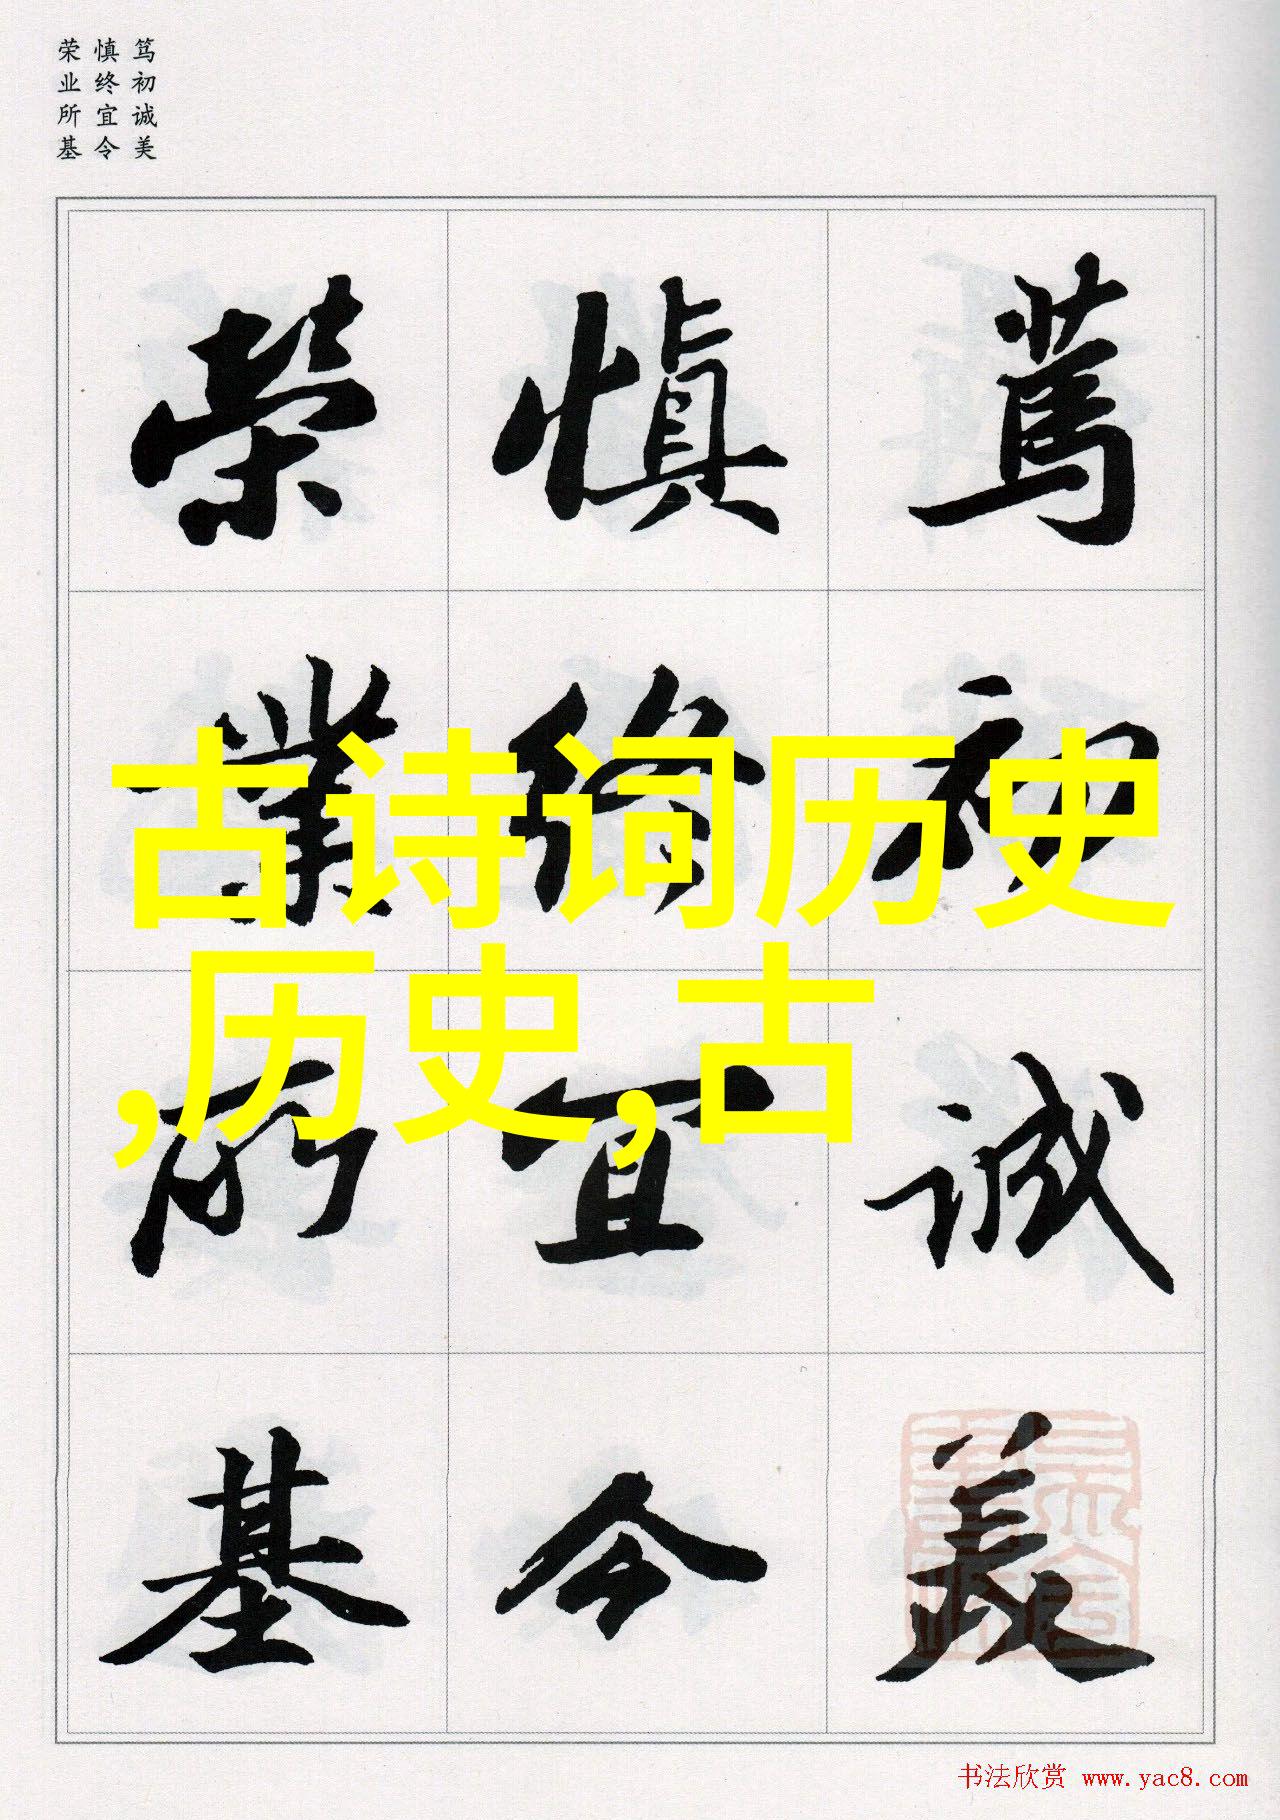 笃初诚美
慎终宜令
荣业所基
篤初诚美
慎终宜令
荣業所基
古诗词历史
,历史,古
书法欣赏 www.yac8.com